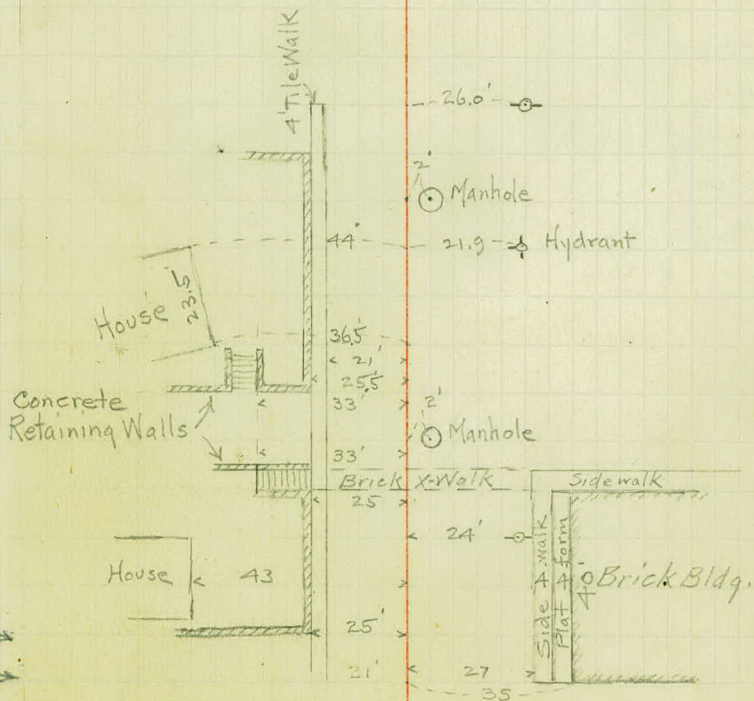 4' Tile Walk
26.0'
2'
Manhole
44'
21.9
Hydrant
House
23.5'
36.5'
21'
25.5
Concrete
Retaining Walls
33'
2'
Manhole
33'
Brick X-Walk
Sidewalk
25
24'
House
43
Side walk
4
Plat form
4
Brick Bldg.
25'
21'
27
35